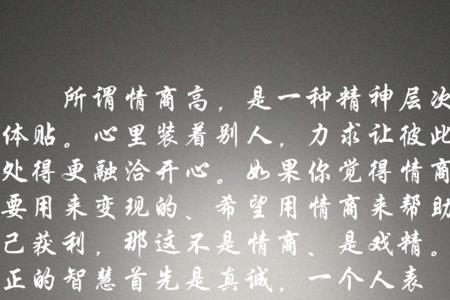 所谓情商高，是一种精神层次
体贴。心里装着别人，力求让彼此
处得更融洽开心。如果你觉得情商
要用来变现的、希望用情商来帮助
己获利，那这不是情商、是戏精。
正的智慧首先是真诚，一个人表